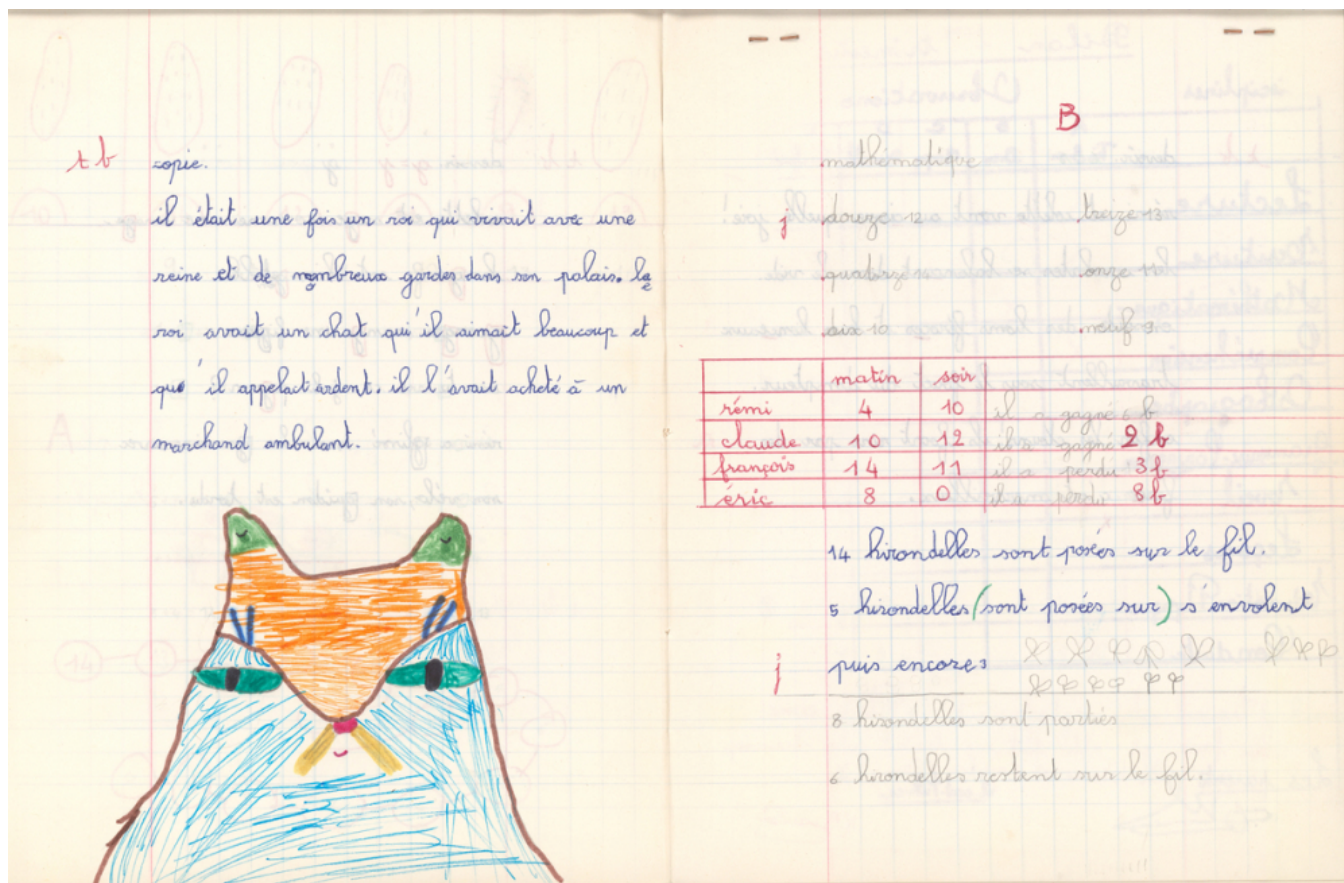 t b
copie.
il était une fois un roi qui vivait avec une
reine et de nombreux gardes dans son palais. le
roi avait un chat qu'il aimait beaucoup et
que'il appelact ardent. il l'avait acheté à un
marchand ambulant.
B
mathématique
j douze 12 treize 13
quatorze 14 onze 11
dix 10 neuf 9
matin soir
rémi 4 10 il a gagné 6 b
claude 10 12 il a gagné 2 b
françois 14 11 il a perdu 3 b
éric 8 0 il a perdu 8 b
14 hirondelles sont posées sur le fil.
5 hirondelles (sont posées sur) s'envolent
j puis encore 3
8 hirondelles sont parties
6 hirondelles restent sur le fil.